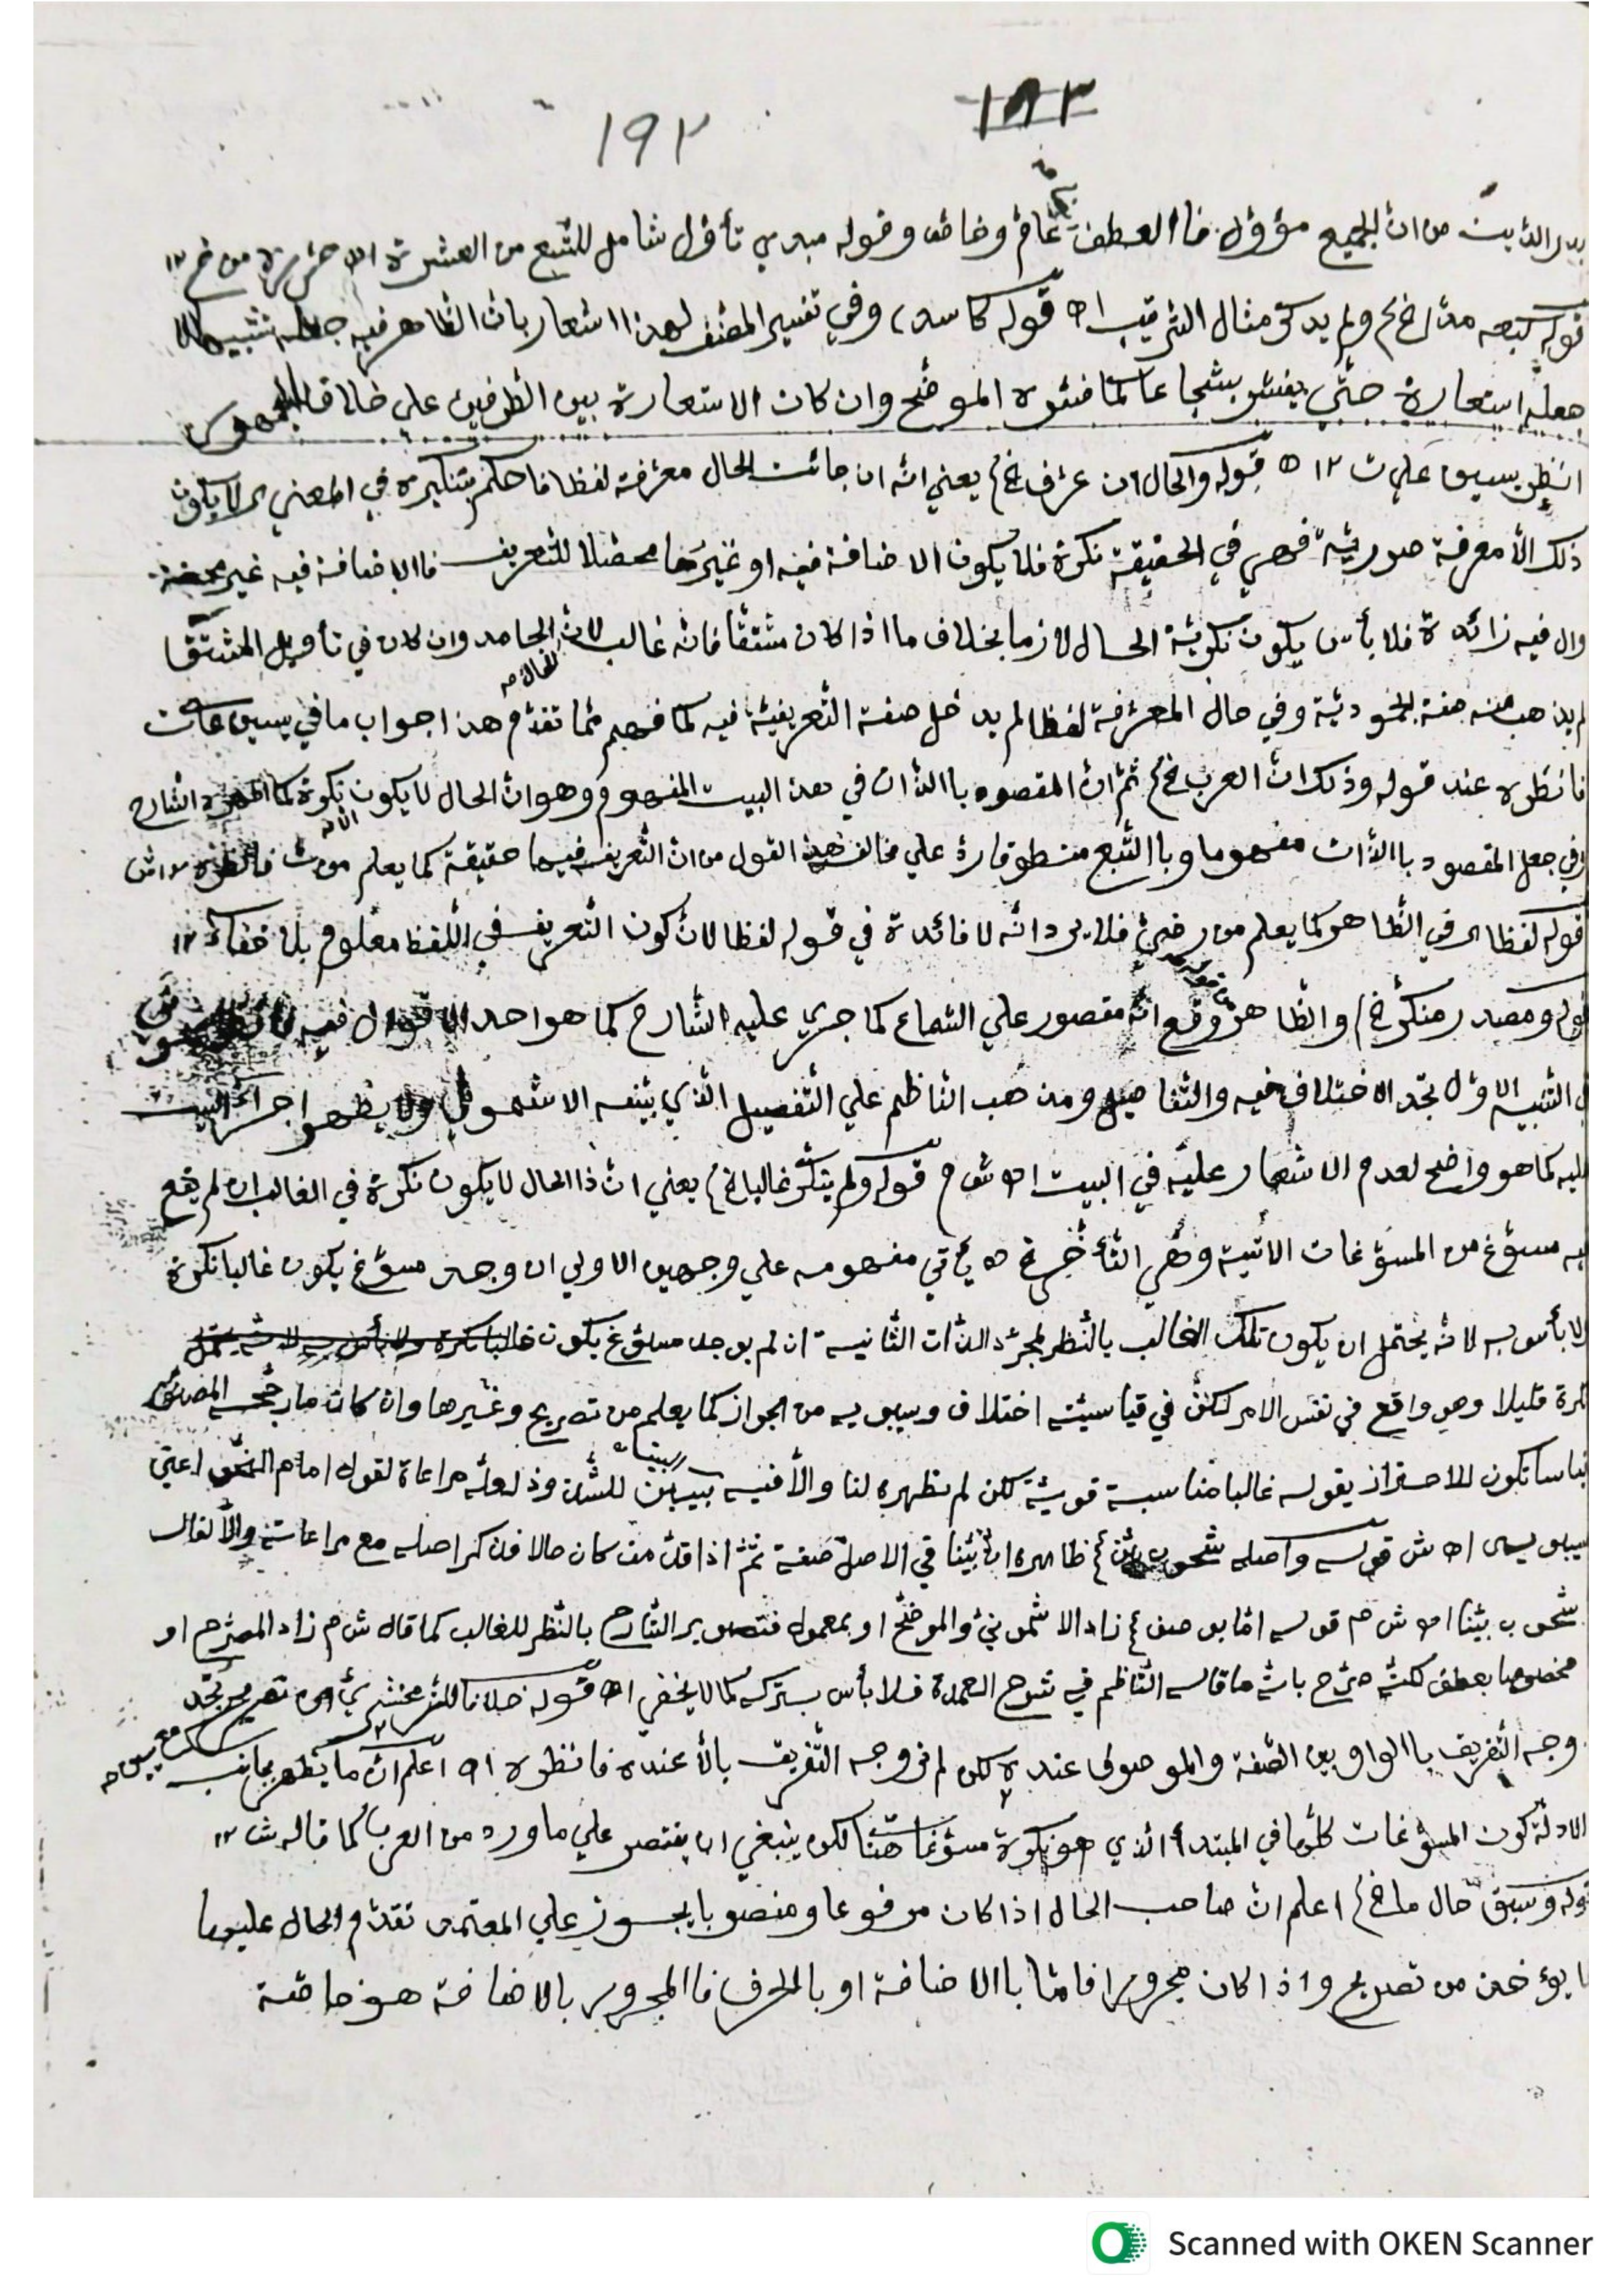 ١٩٢
١٨٣
بدر الدين من ان الجميع مؤول فاالعطف عام وخاص وقوله مبدي تأول شامل للتسع من العشرة
قوله كبعه مدا الخ ولم يذكر مثال الترتيب اه قوله كاسد، وفي تفسير المصنف لهذا اشعار بان الظاهر فيه جعله تشبيها لا
جعله استعارة حتى يفسر بشجاعا كما فسره الموضح وان كان الاستعارة بين الطرفين علي خلاف الجمهور
انظر يسين علي ت ١٢ ه قوله والحال ان عرف الخ يعني انه ان جائت الحال معرفة لفظا فاحكم بتنكيره في المعني لا يكون
ذلك الا معرفة صورية فهي في الحقيقة نكرة فلا يكون الاضافة فيه او غيرها محصلا للتعريف فاالاضافة فيه غير محضة
وال فيه زائدة فلا بأس يكون نكرية الحال لازما بخلاف ما اذا كان مشتقا فانه غالب لان الجامد وان كان في تأويل المشتق
لم يذهب منه صفة الجمودية وفي حال المعرفة لفظا لم يدخل صفة التعريفية فيه كما فهم مما تقدم هذا جواب ما في يسين علي ت
فانظره عند قوله وذلك ان العرب الخ ثم ان المقصود باالذات في هذا البيت المفهوم وهو ان الحال لا يكون نكرة كما اظهره الشارح
وفي جعل المقصود باالذات مفهوما وباالتبع منطوقا رد علي مخالف هذا القول من ان التعريف فيها حقيقة كما يعلم من ت فانظره
قوله لفظا اي في الظاهر كما يعلم من رضي فلا يرد انه لا فائدة في قوله لفظا لان كون التعريف في اللفظ معلوم بلا خفاء ١٢
قوله ومصدر منكر الخ والظاهر وقع انه مقصور علي السماع كما جري عليه الشارح كما هو احد الاقوال فيه
التنبيه الاول تجد الاختلاف فيه والتفاصيل ومذهب الناظم علي التفصيل الذي بينه الاشموني ولا يظهر اجراء البيت
عليه كما هو واضح لعدم الاشعار عليه في البيت اه ش م قوله ولم ينكر غالبا الخ يعني ان ذا الحال لا يكون نكرة في الغالب ان لم يقع
فيه مسوغ من المسوغات الاتية وهي التأخر الخ يأتي مفهومه علي وجهين الاولي ان وجد مسوغ يكون غالبا نكرة
ولا بأس به لانه يحتمل ان يكون تلك الغالب بالنظر لمجرد الذات الثانية ان لم يوجد مسوغ يكون
نكرة قليلا وهو واقع في نفس الامر لكن في قياسيته اختلاف وسيبويه من الجواز كما يعلم من تصريح وغيرها وان كان ما رجحه المصنف
تكون للاحتراز بقوله غالبا مناسبة قوية لكن لم نظهره لنا والا فنيه يبين للشذوذ لعله مراعاة لقول امام النحو اعني
سيبويه اه ش قوله واصله شحوب بين الخ ظاهره ان بينا في الاصل صفة ثم اذا قدمت كان حالا فذكر اصله مع مراعاته والا لقال
شحوب بينا اه ش م قوله اما بوصف الخ زاد الاشموني والموضح او بمعمول فتصوير الشارح بالنظر للغالب كما قال ش م زاد المصرح او
مخصوصا بعطف لكنه صرح بانه ما قاله الناظم في شرح العمدة فلا بأس بتركه كما لا يخفى اه قوله خلافا للزمخشري تصريح تجد
وجه التفريق باالواو بين الصفة والموصوف عنده لكن لم نر وجه التفريق بالا عنده فانظره اه اعلم ان ما يظهر
الادلة كون المسوغات كلها في المبتدأ الذي هو نكرة مسوغات هنا لكن ينبغي ان يقتصر علي ما ورد من العرب كما قاله ش ١٢
قوله وسبق حال ما الخ اعلم ان صاحب الحال اذا كان مرفوعا ومنصوبا يجوز علي المعتمد تقدم الحال عليهما
كما يؤخذ من تصريح واذا كان مجرورا فاما باالاضافة او بالحرف فاالمجرور بالاضافة هو خاصة
Scanned with OKEN Scanner